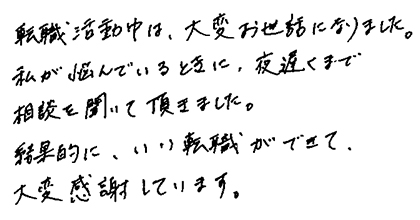 転職活動中は、大変お世話になりました。
私が悩んでいるときに、夜遅くまで
相談を聞いて頂きました。
結果的に、いい転職ができて、
大変感謝しています。